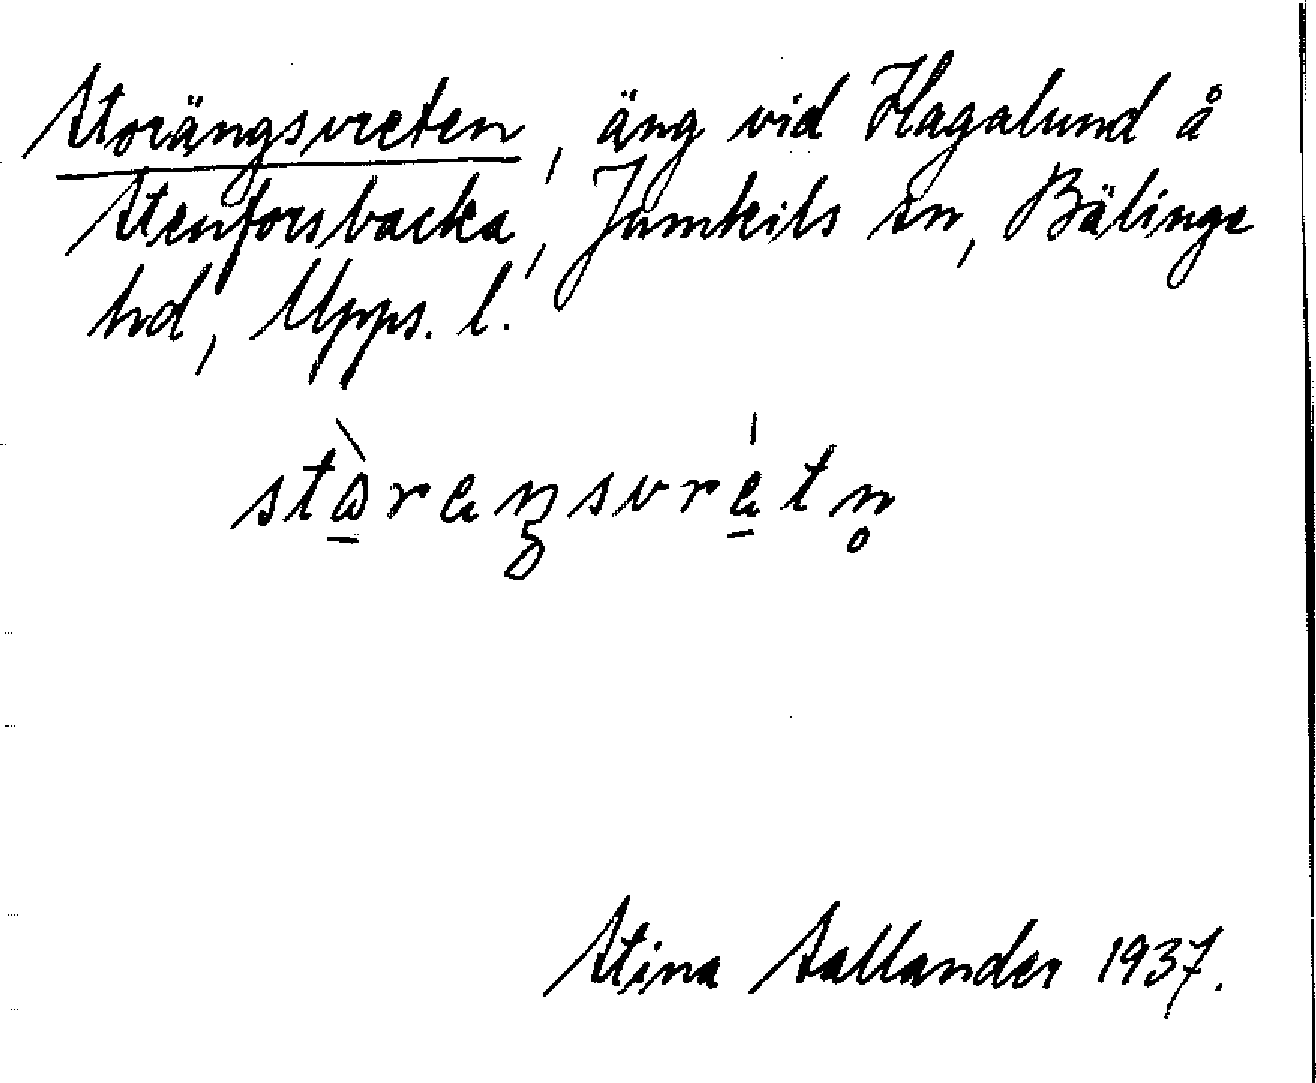 Storängsvreten, äng vid Hagalund å
Stenforsbacka, Jumkils sn, Bälinge
hd, Upps. l.
stɷ̀rɐŋsvrɐ́tn̥
Stina Sallander 1937.